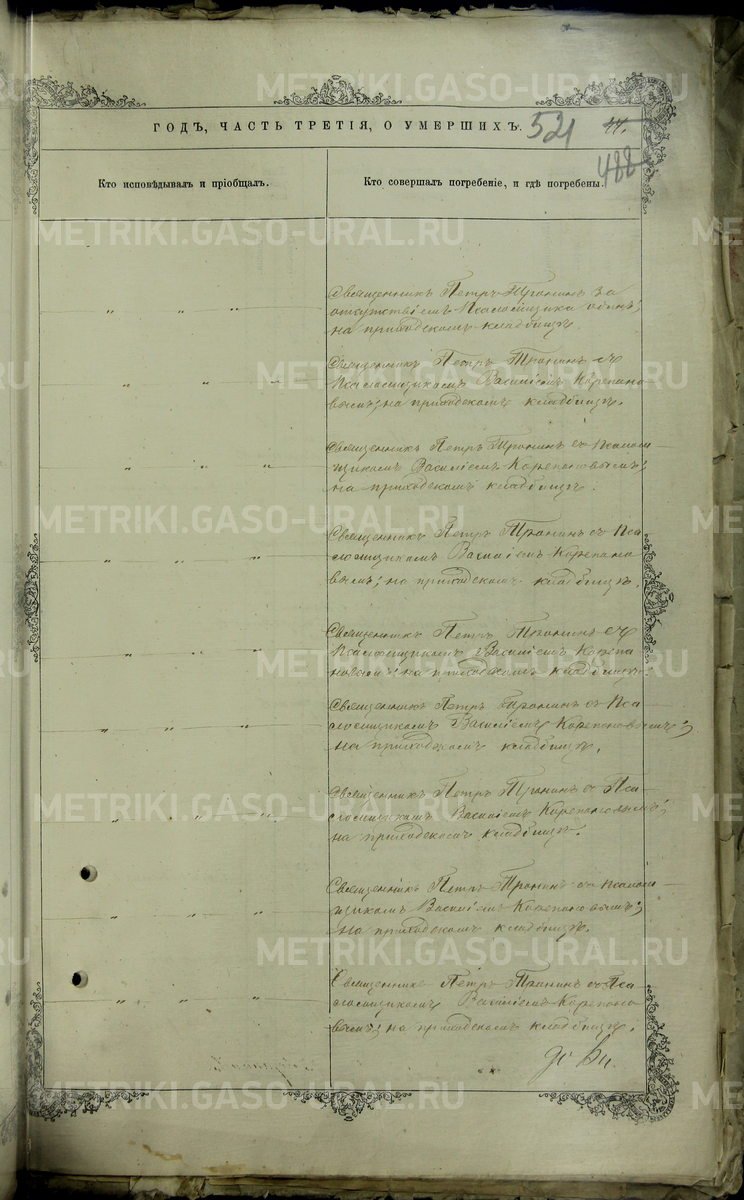 METRIKI.GASO-URAL.RU
ГОДЪ, ЧАСТЬ ТРЕТІЯ, О УМЕРШИХЪ.
521
44.
488
Кто исповѣдывалъ и пріобщалъ.
Кто совершалъ погребеніе, и гдѣ погребены.
METRIKI.GASO-URAL.RU
Священникъ Петръ Тронинъ за
отсутствіемъ Псаломщика одинъ;
на приходскомъ кладбищѣ.
METRIKI.GASO-URAL.RU
Священникъ Петръ Тронинъ съ
Псаломщикомъ Василіемъ Корепано-
вымъ; на приходскомъ кладбищѣ.
Священникъ Петръ Тронинъ съ Псалом
щикомъ Василіемъ Корепановымъ;
на приходскомъ кладбищѣ.
METRIKI.GASO-URAL.RU
Священникъ Петръ Тронинъ съ Пса
ломщикомъ Василіемъ Корепано
вымъ; на приходскомъ кладбищѣ.
Священникъ Петръ Тронинъ съ
Псаломщикомъ Василіемъ Корепа
новымъ; на приходскомъ кладбищѣ.
METRIKI.GASO-URAL.RU
Священникъ Петръ Тронинъ съ Пса
ломщикомъ Василіемъ Корепановымъ;
на приходскомъ кладбищѣ.
Священникъ Петръ Тронинъ съ Пса
ломщикомъ Василіемъ Корепановымъ;
на приходскомъ кладбищѣ.
METRIKI.GASO-URAL.RU
Священникъ Петръ Тронинъ съ Псалом
щикомъ Василіемъ Корепановымъ;
на приходскомъ кладбищѣ.
METRIKI.GASO-URAL.RU
Священникъ Петръ Тронинъ съ Пса
ломщикомъ Василіемъ Корепано
вымъ; на приходскомъ кладбищѣ.
METRIKI.GASO-URAL.RU